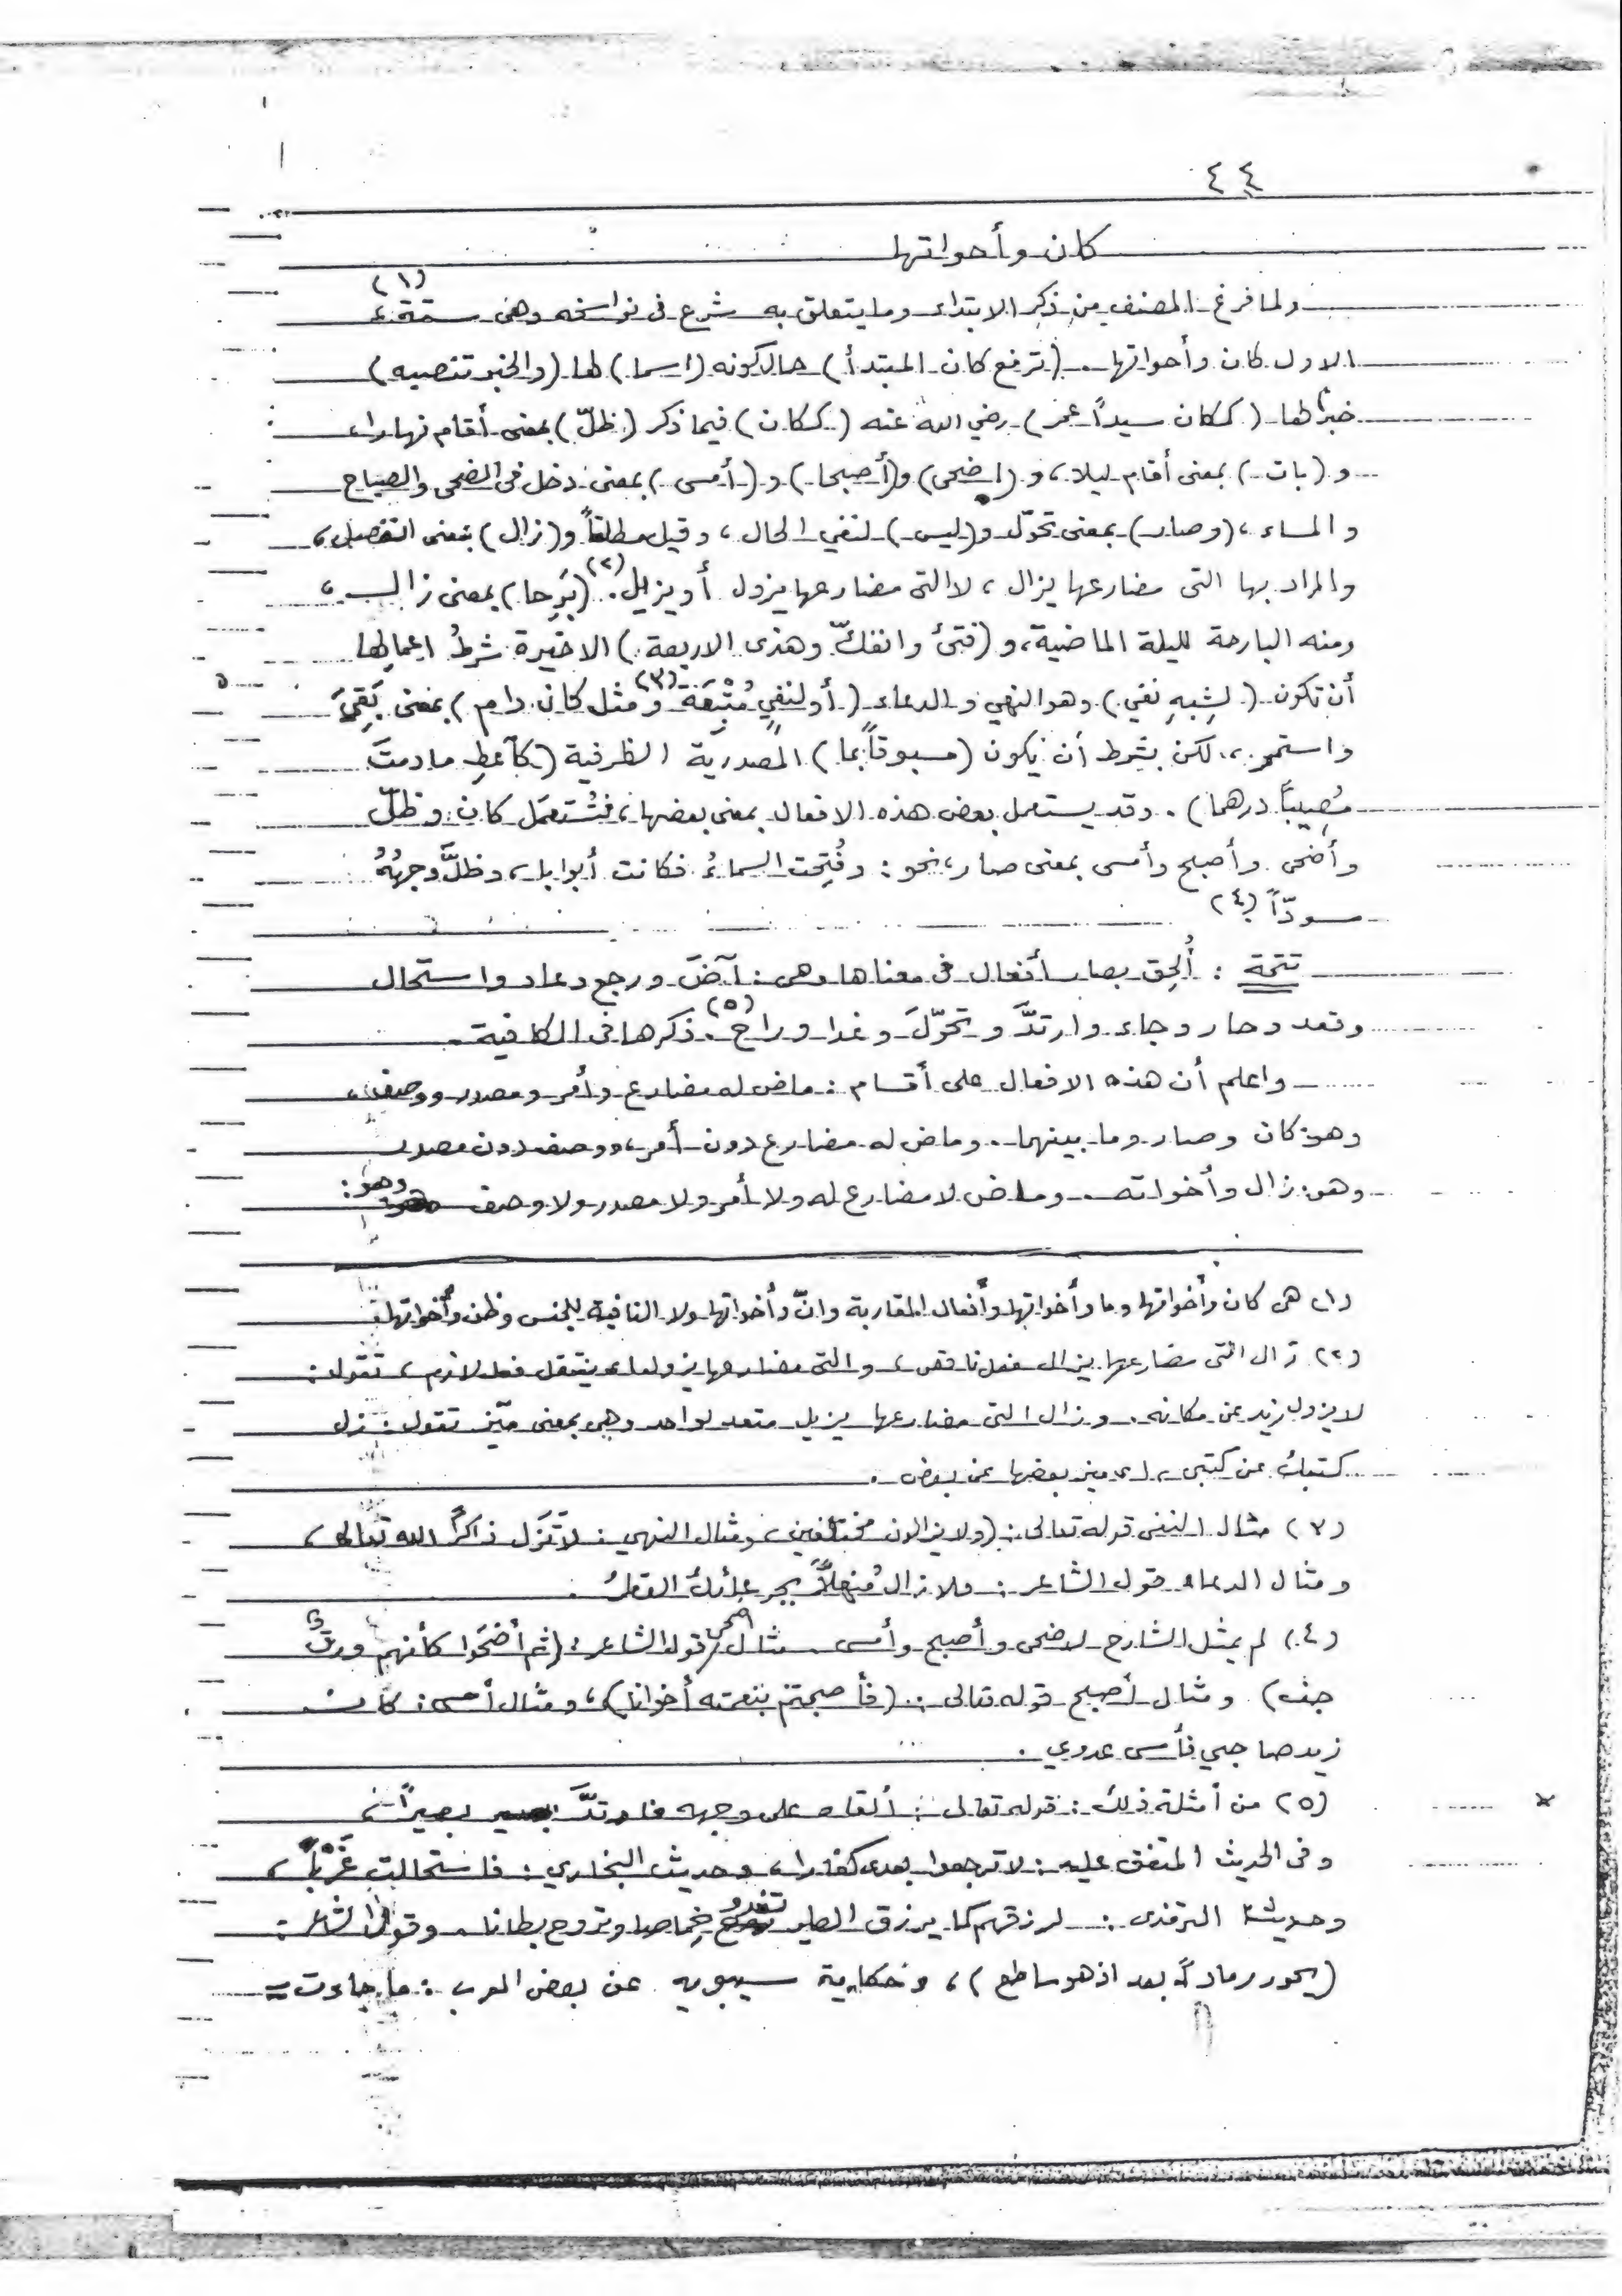 ٤٤
كان وأخواتها
ولما فرغ المصنف من ذكر الابتداء وما يتعلق به شرع في نواسخه وهى ستة (١)
الاول كان وأخواتها . (ترفع كان المبتدأ) حال كونه (اسما) لها (والخبر تنصبه)
خبرا لها (ككان سيداً عمر) رضي الله عنه (ككان) فيما ذكر (ظلّ) بمعنى أقام نهارا،
و (بات) بمعنى أقام ليلا، و (اضحى) و(أصبحا) و (أمسى) بمعنى دخل فى الضحى والصباح
والمساء، (وصار) بمعنى تحوّل و(ليس) لنفي الحال، وقيل مطلقاً و(زال) بمعنى انفصل،
والمراد بها التى مضارعها يزال، لا التى مضارعها يزول أو يزيل. (٢) (بَرِحا) بمعنى زال ،
ومنه البارحة لليلة الماضية، و (فتئ وانفكّ وهذى الاربعة) الاخيرة شرطُ اعمالها
أن تكون (لِشِبهِ نفي) وهو النهي والدعاء (أو لنفيٍ مُتْبَعَة (٣) ومثل كان دام) بمعنى بَقِيَ
واستمر، لكن بشرط أن يكون (مسبوقاً بما) المصدرية الظرفية (كأعطِ ما دمتَ
مُصِيباً درهما) . وقد يستعمل بعض هذه الافعال بمعنى بعضها، فتُستعمَل كان وظلّ
وأضحى وأصبح وأمسى بمعنى صار، نحو : وفُتِحت السماءُ فكانت أبوابا، وظلَّ وجهُهُ
مسودّاً (٤)
تتمة : أُلحِق بصار أفعال فى معناها وهى : آضَ ورجع وعاد واستحال
وقعد وحار وجاء وارتدَّ وتحوّلَ وغدا وراح (٥). ذكرها فى الكافية.
واعلم أن هذه الافعال على أقسام : ماض له مضارع وأمر ومصدر ووصف،
وهو كان وصار وما بينهما. وماض له مضارع دون أمر، ووصف دون مصدر
وهو: زال وأخواته. وماض لا مضارع له ولا أمر ولا مصدر ولا وصف وهو:
(١) هى كان وأخواتها وما وأخواتها وأفعال المقاربة وانّ وأخواتها ولا النافية للجنس وظن وأخواتها.
(٢) زال التى مضارعها يزال فعل ناقص، والتى مضارعها يزول ينتقل فعل لازم، تقول:
لا يزول زيد عن مكانه. وزال التى مضارعها يزيل متعد لواحد وهى بمعنى ميّز تقول : زل
كتبك عن كتبى، اى ميز بعضها عن بعض .
(٣) مثال النفى قوله تعالى : (ولا يزالون مختلفين)، ومثال النهي : لا تَزَل ذاكرًا الله تعالى،
ومثال الدعاء قول الشاعر : ولا زال مُنهلاًّ بجرعائكِ القطرُ .
(٤) لم يمثل الشارح لاضحى وأصبح وأمسى مثال أضحى قول الشاعر : (ثم أضحَوا كأنهم ورقٌ
جف) ومثال أصبح قوله تعالى : (فأصبحتم بنعمته أخوانا)، ومثال أمسى : كان
زيد صاحبي فأمسى عدوي .
(٥) من أمثلة ذلك : قوله تعالى : ألقاه على وجهه فارتدَّ بصيرًا،
وفى الحديث المتفق عليه : لا ترجعوا بعدى كفارا، وحديث البخاري : فاستحالت غَرْباً،
وحديث الترمذى : لرزقهم كما يرزق الطير تغدو خِماصا وتروح بطانا. وقول الشاعر :
(يحور رماداً بعد اذ هو ساطع)، وحكاية سيبويه عن بعض العرب : ما جاءت =